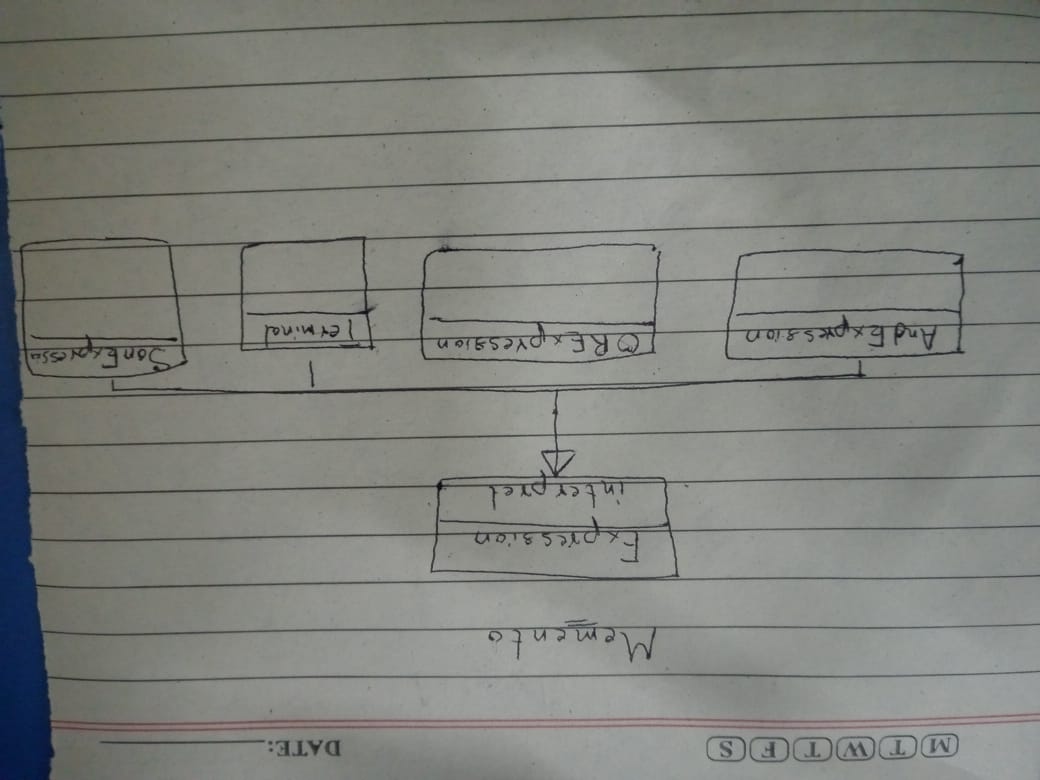 M T W T F S
DATE:
Memento
Expression
interpret
AndExpression
OR Expression
Terminal